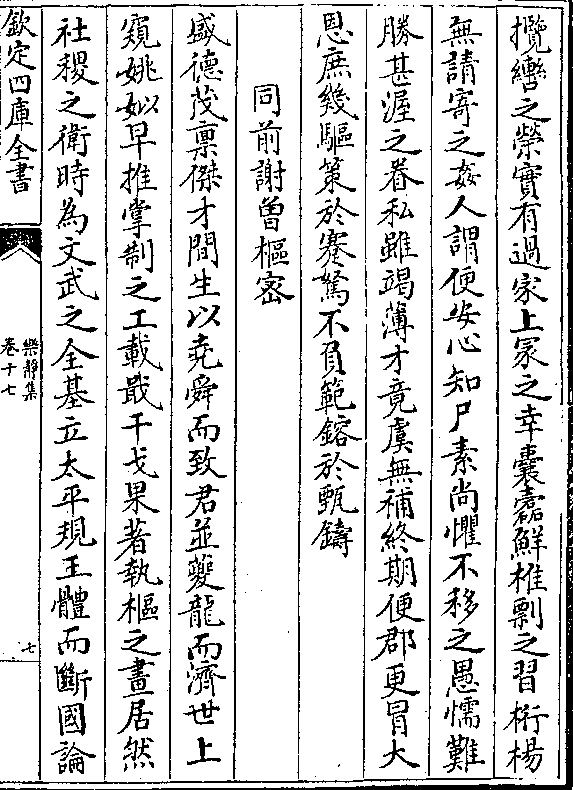 攬轡之榮實有過家上冡之幸囊橐鮮椎剽之習桁楊
無請寄之姦人謂便安心知尸素尚懼不移之愚懦難
勝甚渥之眷私雖竭薄才竟虞無補終期便郡更冒大
恩庶幾驅策於蹇駑不負範鎔於甄鑄
同前謝曾樞宻
盛德茂禀傑才間生以堯舜而致君並夔龍而濟世上
窺姚姒早推掌制之工載戢干戈果著執樞之畫居然
社稷之衛時為文武之全基立太平規王體而斷國論
欽定四庫全書
樂靜集
卷十七
七